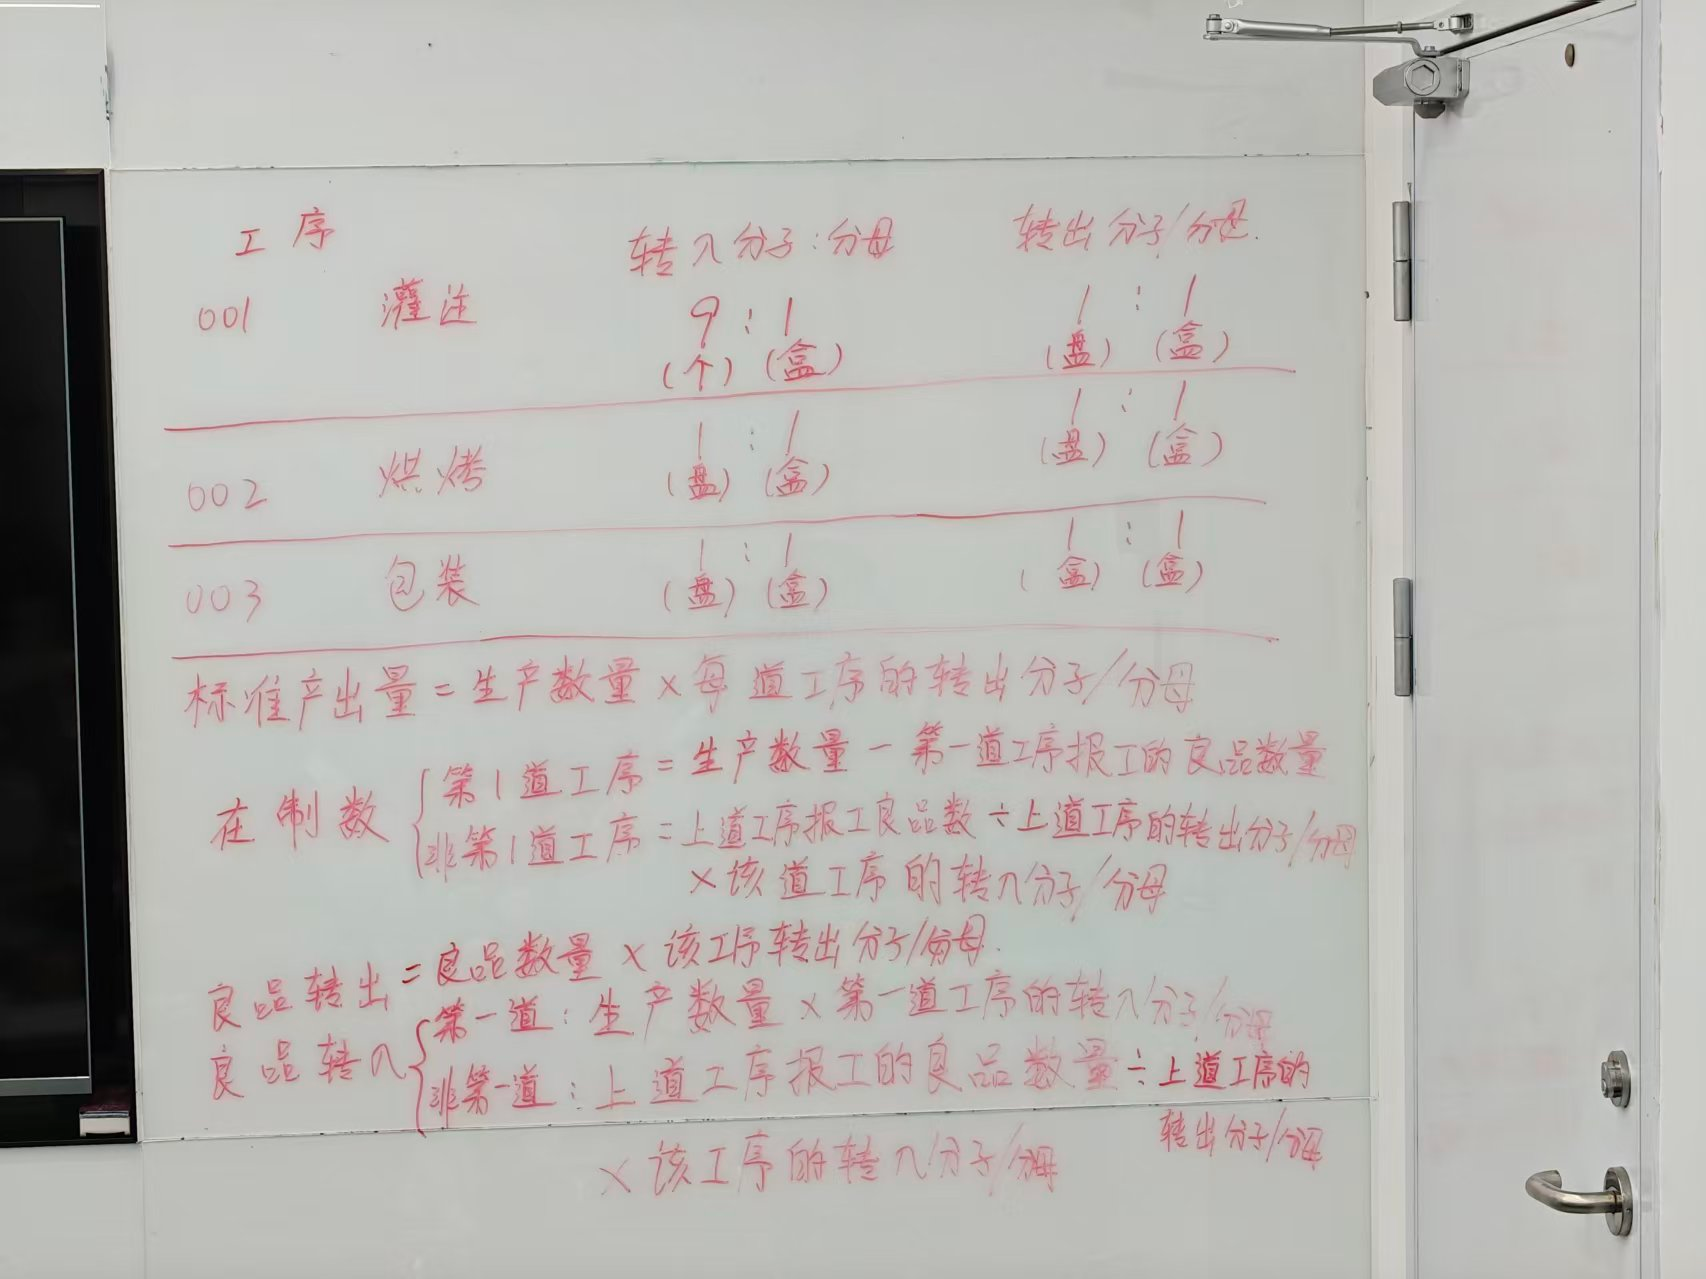 工序 转入分子:分母 转出分子/分母.
001 灌注 9:1 1:1
(个) (盒) (盘) (盒)
002 烘烤 1:1 1:1
(盘) (盒) (盘) (盒)
003 包装 1:1 1:1
(盘) (盒) (盒) (盒)
标准产出量=生产数量×每道工序的转出分子/分母
在制数
第1道工序=生产数量-第一道工序报工的良品数量
非第1道工序=上道工序报工良品数÷上道工序的转出分子/分母
×该道工序的转入分子/分母
良品转出=良品数量×该工序转出分子/分母.
良品转入
第一道:生产数量×第一道工序的转入分子/分母
非第一道:上道工序报工的良品数量÷上道工序的
转出分子/分母
×该工序的转入分子/分母